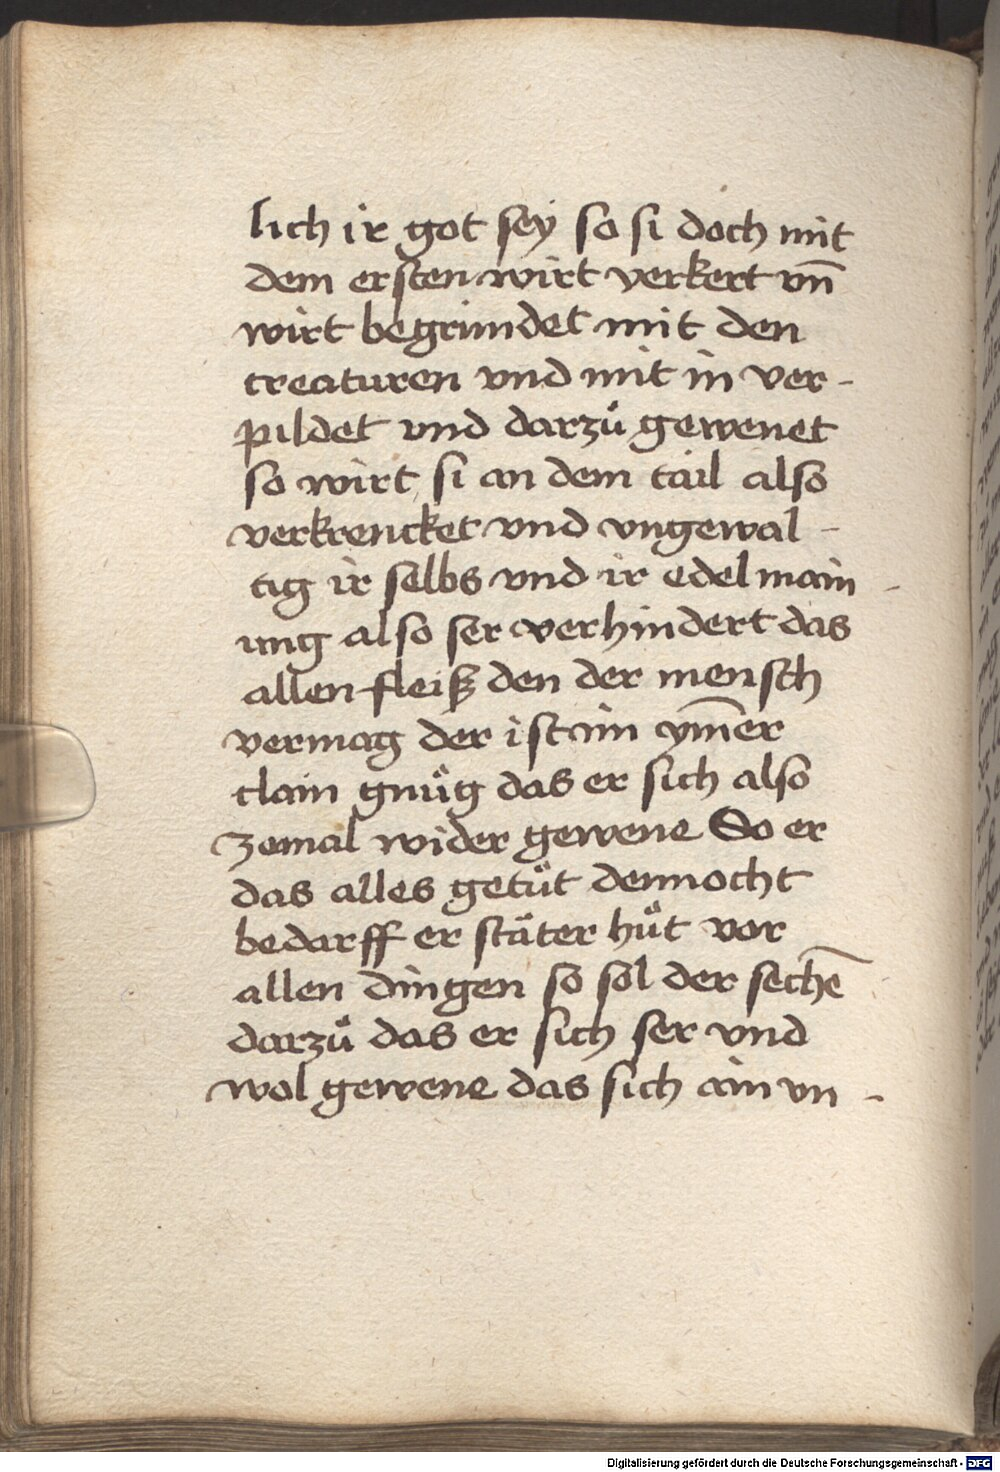 lich ir got sey so si doch mit
dem ersten wirt verkert vn̄
wirt begrundet mit den
creaturen vnd mit in ver-
pildet vnd darzuͦ gewenet
so wirt si an dem tail also
verkrencket vnd vngewal-
tig ir selbs vnd ir edel main-
ung also ser verhindert das
allen fleiß den der mensch
vermag der ist im ym̄er
clain gnuͦg das er sich also
zemal wider gewene So er
das alles getuͦt dennocht
bedarff er staͤter huͦt vor
allen dingen so sol der sechē
darzuͦ das er sich ser vnd
wol gewene das sich ain vn-
Digitalisierung gefördert durch die Deutsche Forschungsgemeinschaft - DFG